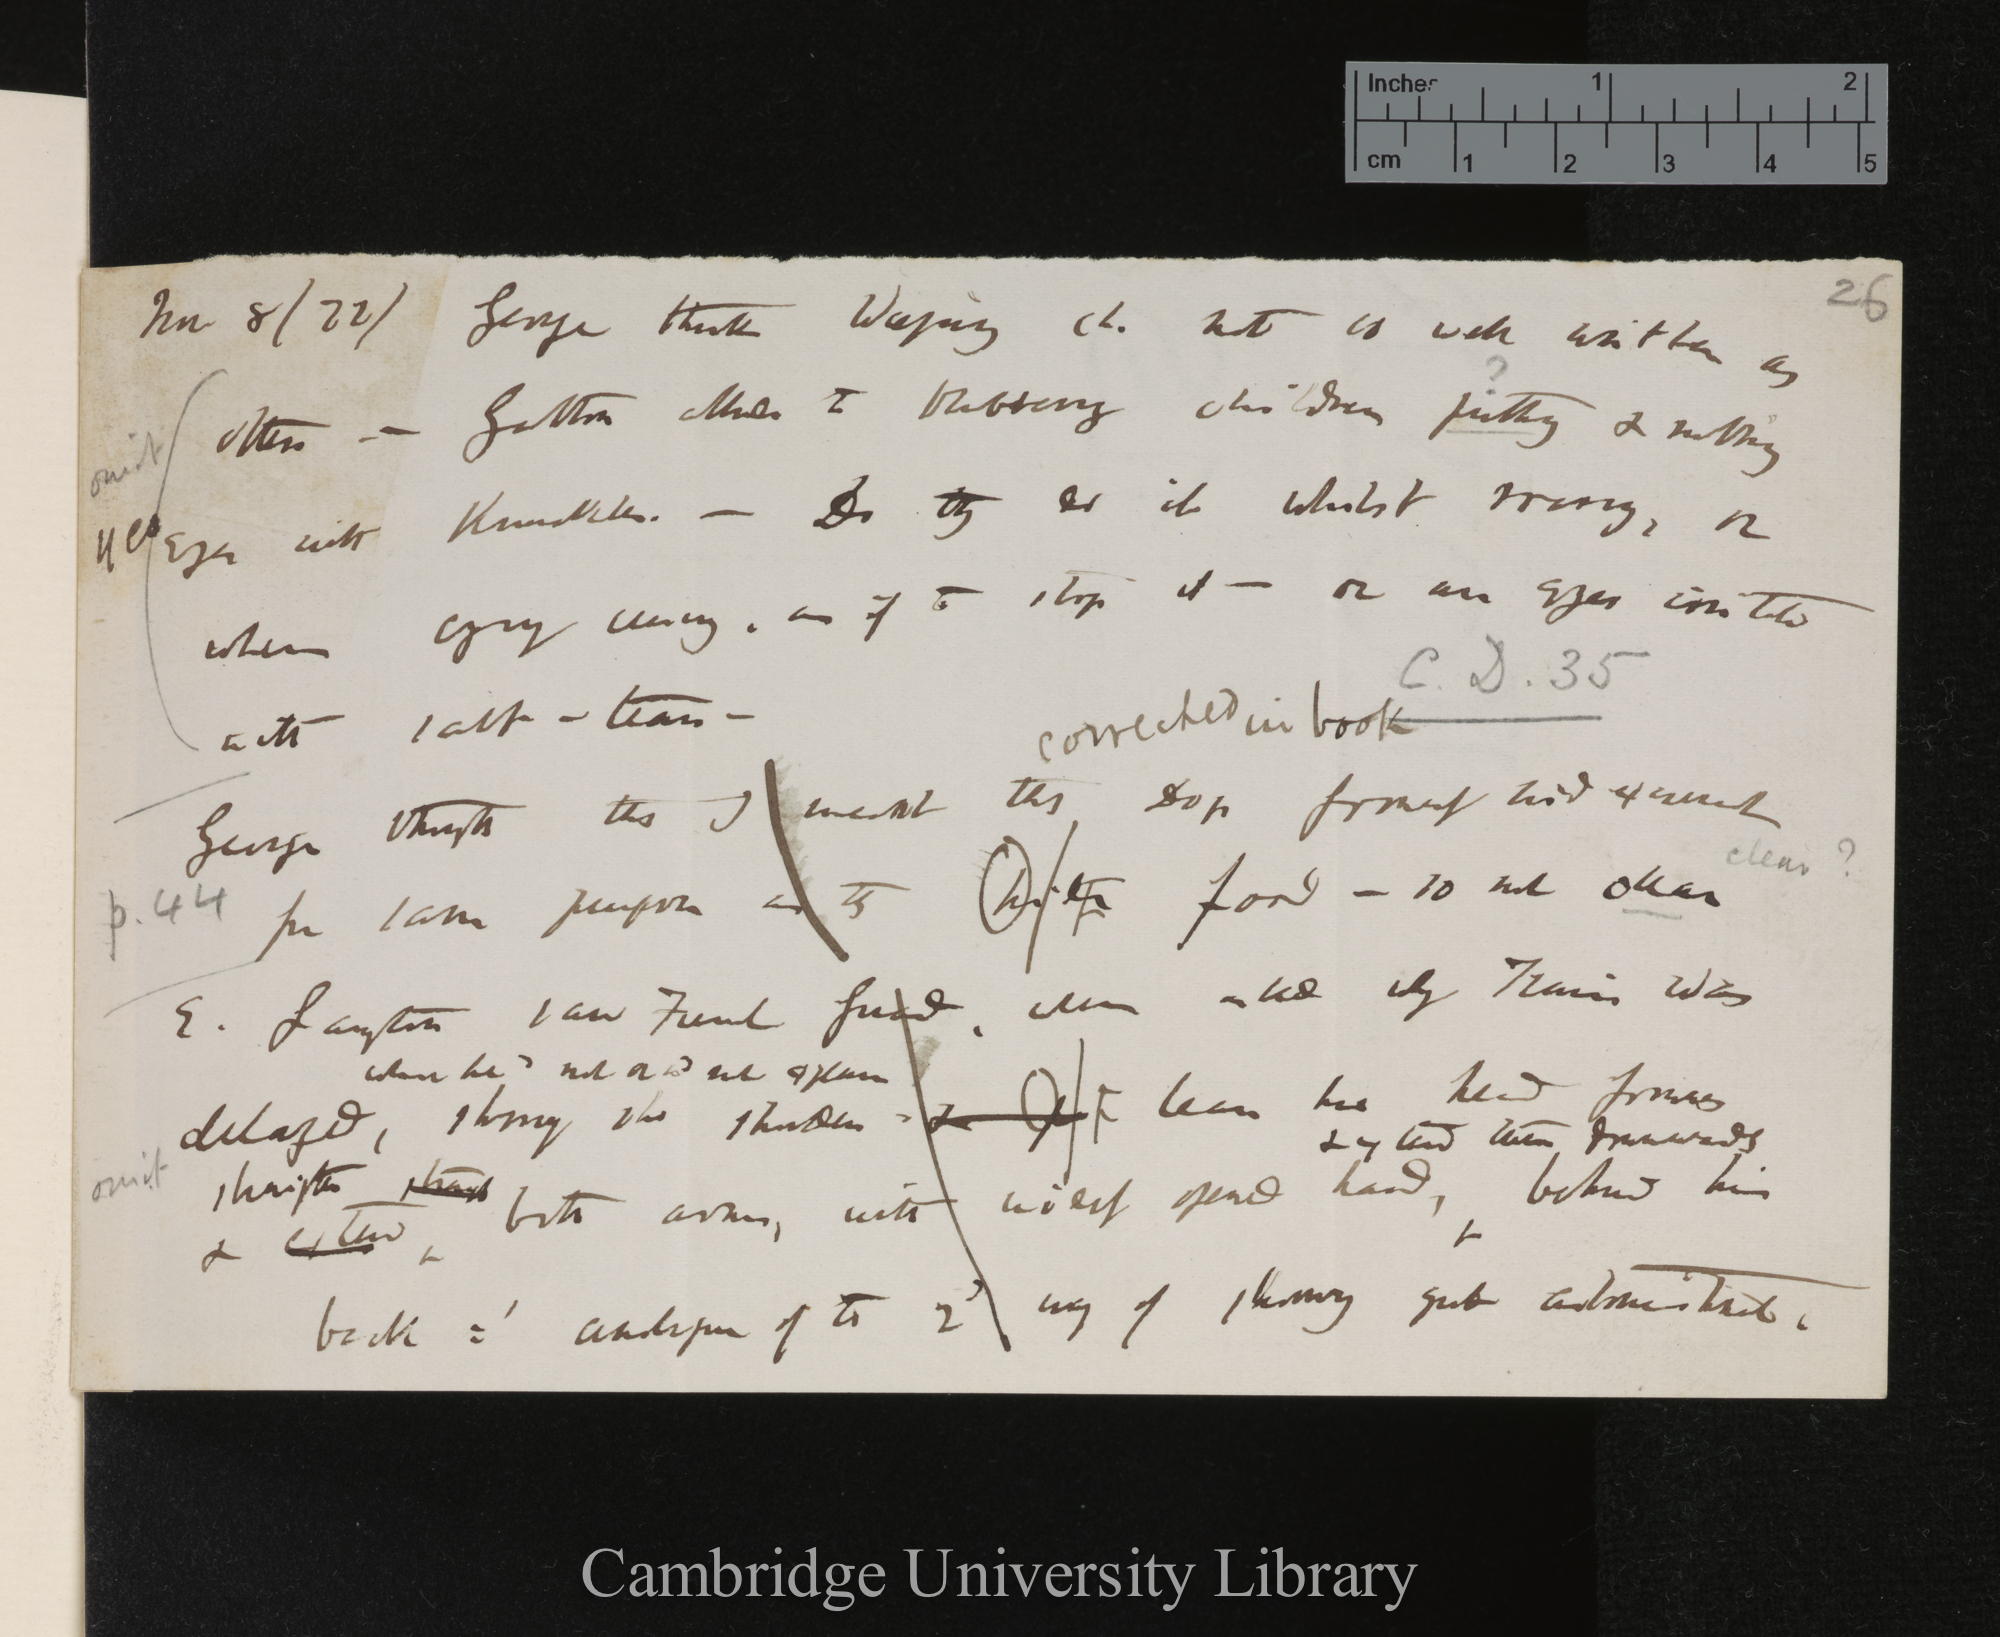 Inches 1 2
cm 1 2 3 4 5
26
Nov 8/72/ George thinks Weeping ch. not so well written as
?
others — Galton alludes to blubbering children & rubbing
omit
yes
Eyes with Knuckles. — Do they do it whilst crying, or
when crying, as if to stop it — or are Eyes irritated
C. D. 35
with salt-tears —
corrected in book
George thought that I meant that Dogs formerly hid excrement
clear ?
p. 44
for same purpose as they hide food — so not clear
E. Langton saw French friend, when asked why Train was
when he did not or could not explain
delayed, shrug his shoulders & lean his head forwards
& extend them downwards
omit
straighten both arms, with widely opened hands, behind his
& extend
back = analogue of the 2d way of showing great astonishment.
Cambridge University Library